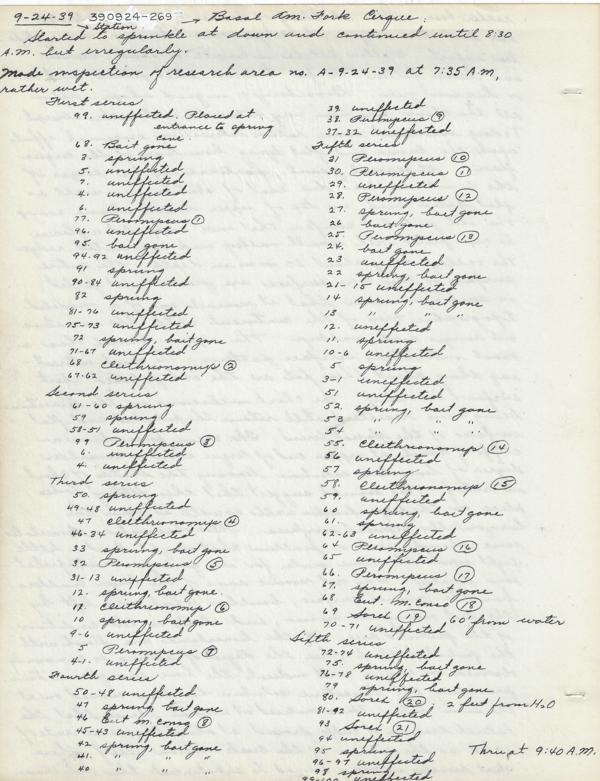 9-24-39 390924-269 → Basal Am. Fork Cirque.
→ Station
Started to sprinkle at down and continued until 8:30
A.M. but irregularly.
Made inspection of research area no. A-9-24-39 at 7:35 A.M,
rather wet.
First series
99. uneffected. Placed at
entrance to spring
cave.
68. Bait gone
3. sprung
5. uneffected
7. uneffected
4. uneffected
6. uneffected
77. Peromyscus ①
96. uneffected
95. bait gone
94-92 uneffected
91 sprung
90-84 uneffected
82 sprung
81-76 uneffected
75-73 uneffected
72 sprung, bait gone
71-67 uneffected
68 Cleithrionomys ②
67-62 uneffected
Second series
61-60 sprung
59 sprung
58-51 uneffected
99 Peromyscus ③
6. uneffected
4. uneffected
Third series
50. sprung
49-48 uneffected
47 Cleithrionomys ④
46-34 uneffected
33 sprung, bait gone
32 Peromyscus ⑤
31-13 uneffected
12. sprung, bait gone.
11. Cleithrionomys ⑥
10 sprung, bait gone
9-6 uneffected
5 Peromyscus ⑦
4-1. uneffected
Fourth series
50-48 uneffected
47 sprung, bait gone
46 Eut. m. cons ⑧
45-43 uneffected
42 sprung, bait gone
41. " " "
40 " " "
39. uneffected
38. Peromyscus ⑨
37-32 uneffected
Fifth series
31 Peromyscus ⑩
30. Peromyscus ⑪
29. uneffected
28. Peromyscus ⑫
27. sprung, bait gone
26 bait gone
25. Peromyscus ⑬
24. bait gone
23 uneffected
22 sprung, bait gone
21-15 uneffected
14 sprung, bait gone
13 " " "
12. uneffected
11. sprung
10-6 uneffected
5 sprung
3-1 uneffected
51 uneffected
52. sprung, bait gone
53 " " "
54 " " "
55. Cleithrionomys ⑭
56 uneffected
57 sprung
58. Cleithrionomys ⑮
59. uneffected
60 sprung, bait gone
61. sprung
62-63 uneffected
64 Peromyscus ⑯
65 uneffected
66. Peromyscus ⑰
67. sprung, bait gone
68 Eut. M. Conso ⑱
69 Sorex ⑲ 60' from water
70-71 uneffected
Sixth series
72-74 uneffected
75. sprung, bait gone
76-78 uneffected
79 sprung, bait gone
80. Sorex ⑳ 2 feet from H2O
81-92 uneffected
93 Sorex ㉑
94 uneffected
95 sprung
96-97 uneffected
98 sprung
99-100 uneffected
Thru at 9:40 A.M.